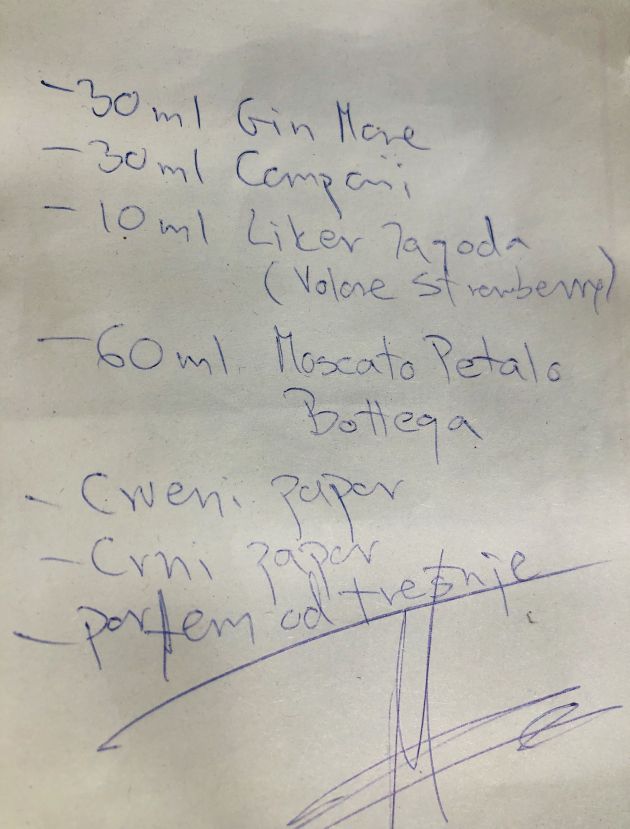 - 30 ml Gin Mare
- 30 ml Campari
- 10 ml Liker Jagoda
(Volare Strawberry)
- 60 ml. Moscato Petalo
Bottega
- Crveni papar
- Crni papar
- parfem od trešnje